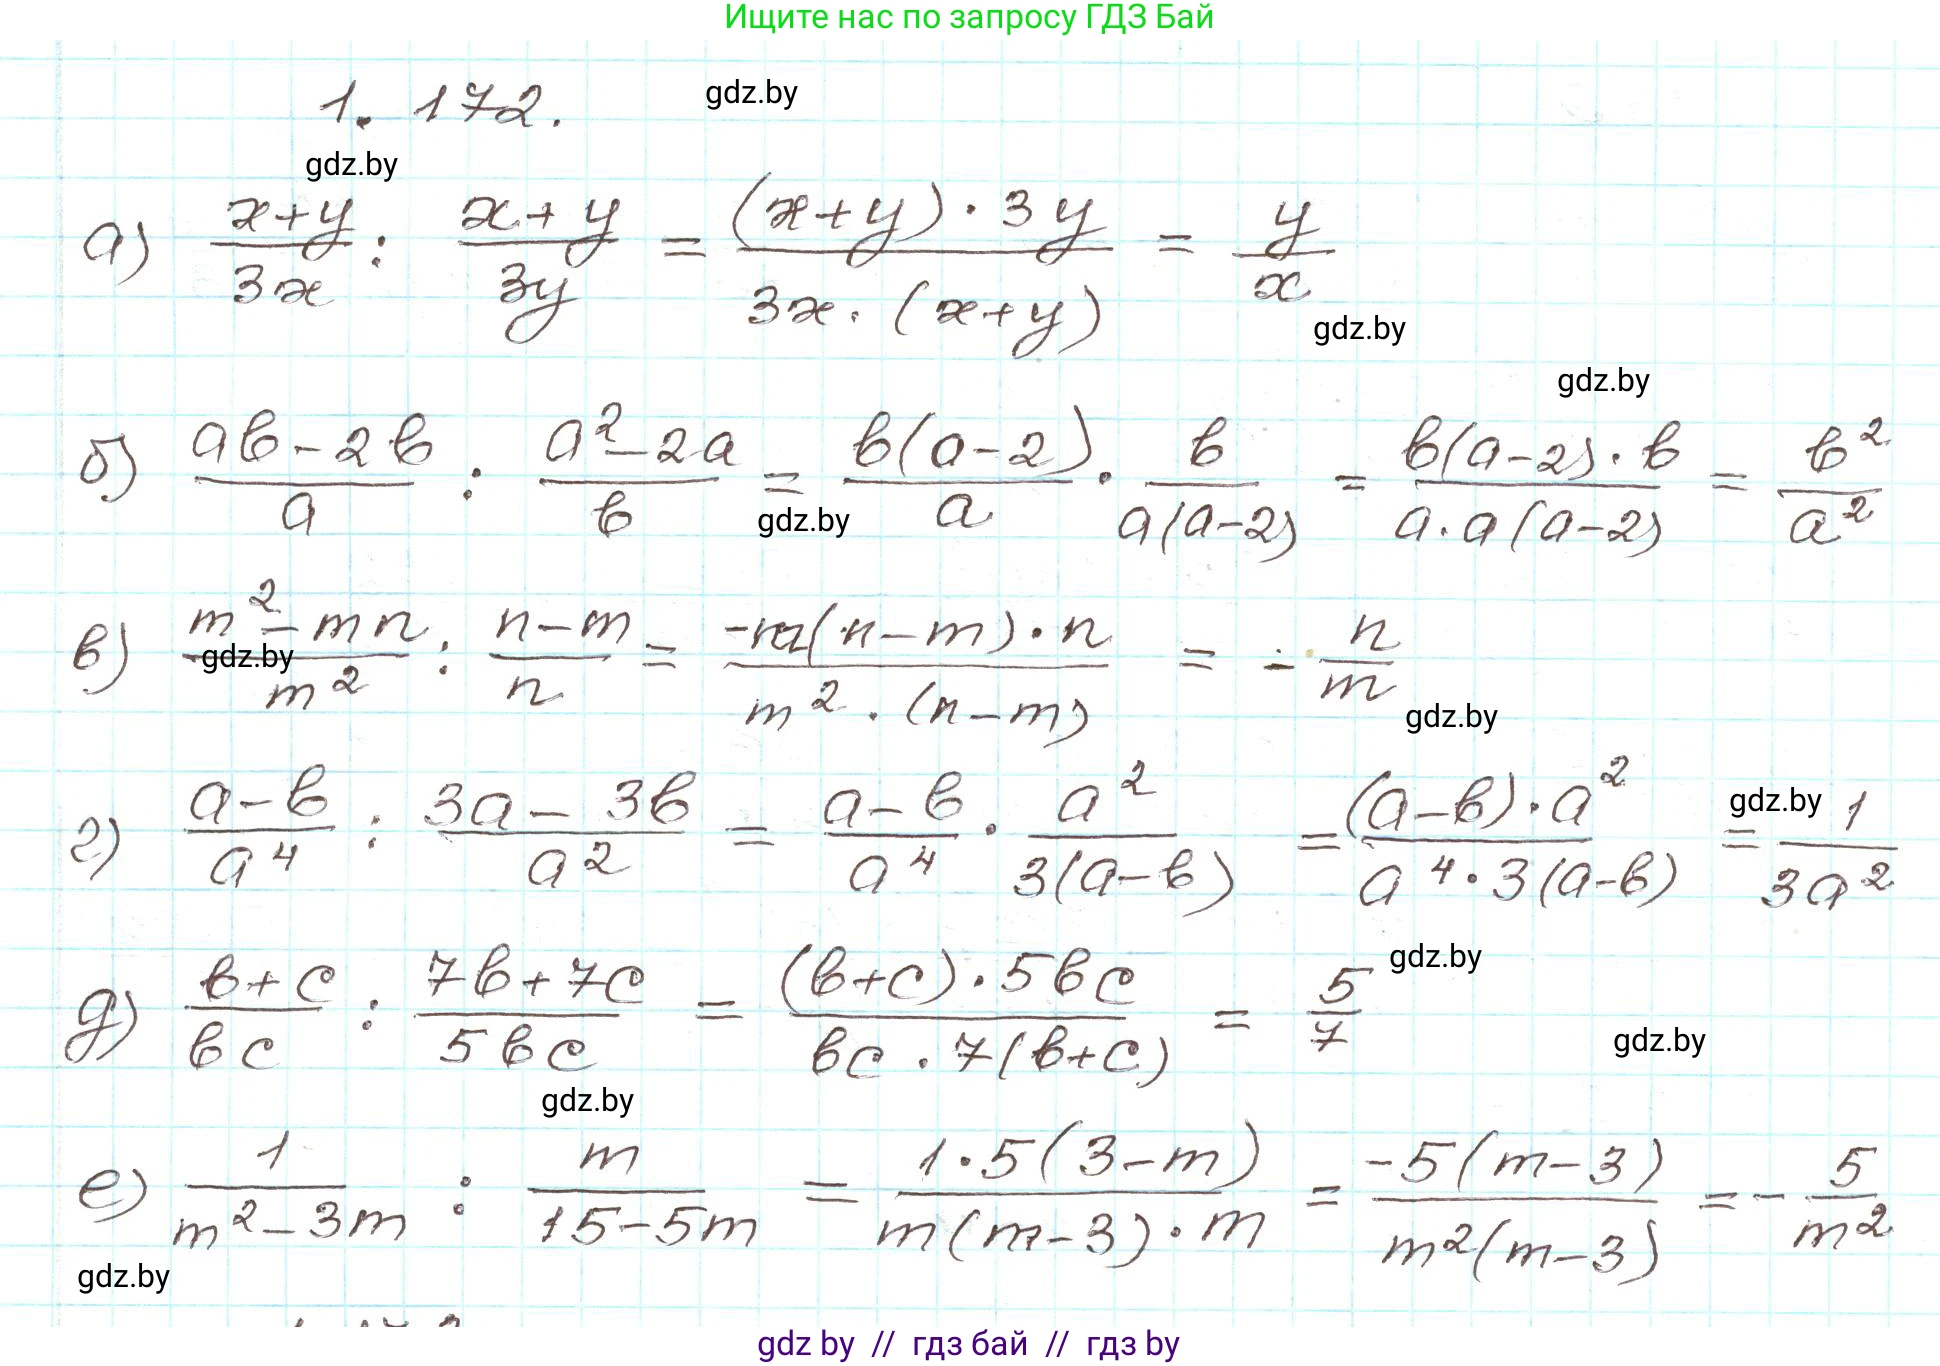 Ищите нас по запросу ГДЗ Бай
1.172. gdz.by
gdz.by
а) (x+y)/(3x) : (x+y)/(3y) = ((x+y)·3y)/(3x·(x+y)) = y/x
gdz.by
gdz.by
б) (ab-2b)/a : (a²-2a)/b = (b(a-2))/a · b/(a(a-2)) = (b(a-2)·b)/(a·a(a-2)) = b²/a²
gdz.by
в) (m²-mn)/m² : (n-m)/n = (-m(n-m)·n)/(m²·(n-m)) = -n/m
gdz.by
gdz.by
г) (a-b)/a⁴ : (3a-3b)/a² = (a-b)/a⁴ · a²/(3(a-b)) = ((a-b)·a²)/(a⁴·3(a-b)) = 1/(3a²)
gdz.by
д) (b+c)/(bc) : (7b+7c)/(5bc) = ((b+c)·5bc)/(bc·7(b+c)) = 5/7
gdz.by
gdz.by
gdz.by
е) 1/(m²-3m) : m/(15-5m) = (1·5(3-m))/(m(m-3)·m) = (-5(m-3))/(m²(m-3)) = -5/m²
gdz.by
gdz by // гдз бай // гдз by